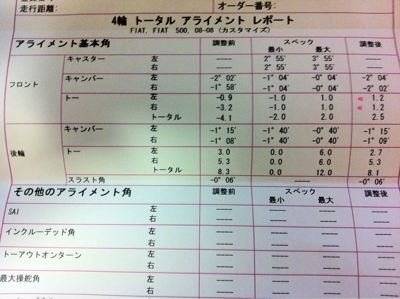 走行距離: オーダー番号:
4輪 トータル アライメント レポート
FIAT, FIAT 500, 08-08 (カスタマイズ)
アライメント基本角 調整前 スペック 調整後
最小 最大
フロント
キャスター 左 ---- 2° 55' 3° 55' ----
右 ---- 2° 55' 3° 55' ----
キャンバー 左 -2° 02' -1° 04' -0° 04' -2° 04'
右 -1° 58' -1° 04' -0° 04' -2° 02'
トー 左 -0.9 -1.0 1.0 1.2
右 -3.2 -1.0 1.0 1.2
トータル -4.1 -2.0 2.0 2.5
後輪
キャンバー 左 -1° 15' -1° 40' -0° 40' -1° 15'
右 -1° 08' -1° 40' -0° 40' -1° 09'
トー 左 3.0 0.0 6.0 2.7
右 5.3 0.0 6.0 5.3
トータル 8.3 0.0 12.0 8.1
スラスト角 -0° 06' ---- -0° 06'
その他のアライメント角 調整前 スペック 調整後
最小 最大
SAI 左 ---- ---- ---- ----
右 ---- ---- ---- ----
インクルーデッド角 左 ---- ---- ---- ----
右 ---- ---- ---- ----
トーアウトオンターン 左 ---- ---- ---- ----
右 ---- ---- ---- ----
最大操舵角 左 ---- ---- ---- ----
右